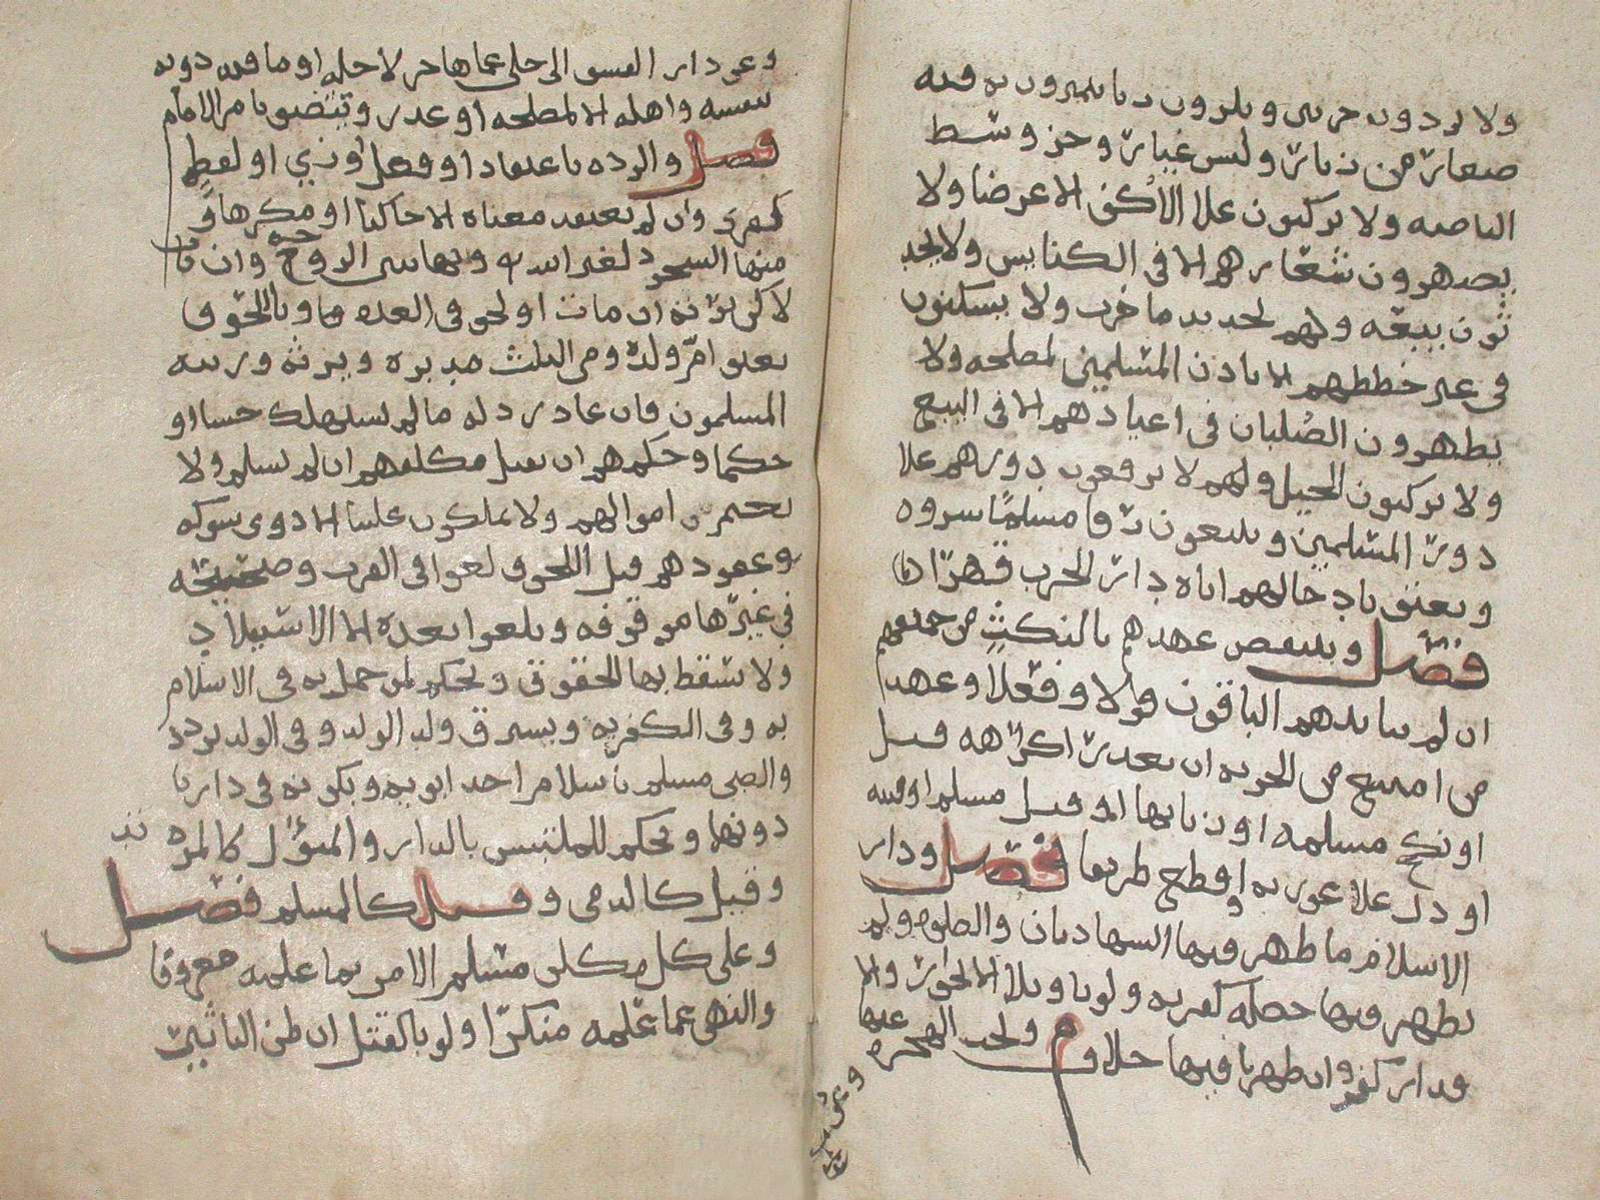 ولا يردون حربي ويلزون زيا يتميزون به فيه
صغار من زنار ولبس غيار وجز وسط
الناصيه ولا يركبون علا الاكف الا عرضا ولا
يضهرون شعارهم الا في الكنايس ولا يحد
ثون بيعه ولهم تجديد ما خرب ولا يسكنون
في غير خططهم الا باذن المسلمين لمصلحه ولا
يظهرون الصلبان في اعيادهم الا في البيع
ولا يركبون الخيل ولهم لا يرفعون دورهم علا
دور المسلمين ويبيعون رقا مسلما شروه
ويعتق بادخالهم اياه دار الحرب قهرا
فصل وينتقض عهدهم بالنكث من جميعهم
ان لم يباينهم الباقون قولا وفعلا وعهد
من امتنع من الجزيه ان تعذر اكراهه قيل
او نكح مسلمه او زنا بها او قتل مسلما او فتنه
او دل علا عورته او قطع طريقا فصل ودار
الاسلام ما ظهر فيها الشهادتان والصلوه ولم
تظهر فيها خصله كفريه ولو تاويلا الا بجوار والا
فدار كفر وان ظهرتا فيها خلاف م وتجب الهجره عنها
وعن دار الفسق الى خلي عما هاجر لاجله او ما فيه دونه
بنفسه واهله الا لمصلحه او عذر ويتضيق بامر الامام
فصل والرده باعتقاد او فعل او زي او لفظ
كفري وان لم يعتقد معناه الا حاكيا او مكرها و
منها السجود لغير الله وبها تبين الزوجه وان تاب
لاكن ترثه ان مات او لحق في العده وباللحوق
يعتق ام ولده ومن الثلث مدبره ويرثه ورثته
المسلمون فان عاد رد له ما لم يستهلك حسا او
حكما وحكمهم ان يقتل مكلفهم ان لم يسلم ولا
تغنم اموالهم ولا يملكون علينا الا ذوي شوكه
وعقودهم قبل اللحوق لغو في القرب وصحيحه
في غيرها موقوفه وتلغوا بعده الا الاستيلاد
ولا تسقط بها الحقوق ويحكم لمن حمل به في الاسلام
به وفي الكفر به ويسترق ولد الولد وفي الولد تردد
والصبي مسلم باسلام احد ابويه وبكونه في دارنا
دونهما ويحكم للملتبس بالدار والمتؤل كالمرتد
وقيل كالذمي وقيل كالمسلم فصل
وعلى كل مكلف مسلم الامر بما علمه معروفا
والنهي عما علمه منكرا ولو بالقتل ان ظن التاثير